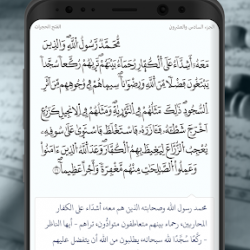 الجزء السادس والعشرون
الفتح الحجرات
مُّحَمَّدٌ رَّسُولُ ٱللَّهِۚ وَٱلَّذِينَ
مَعَهُۥٓ أَشِدَّآءُ عَلَى ٱلْكُفَّارِ رُحَمَآءُ بَيْنَهُمْۖ تَرَىٰهُمْ رُكَّعًا سُجَّدًا
يَبْتَغُونَ فَضْلًا مِّنَ ٱللَّهِ وَرِضْوَٰنًاۖ سِيمَاهُمْ فِى وُجُوهِهِم مِّنْ أَثَرِ
ٱلسُّجُودِۚ ذَٰلِكَ مَثَلُهُمْ فِى ٱلتَّوْرَىٰةِۚ وَمَثَلُهُمْ فِى ٱلْإِنجِيلِ كَزَرْعٍ
أَخْرَجَ شَطْـَٔهُۥ فَـَٔازَرَهُۥ فَٱسْتَغْلَظَ فَٱسْتَوَىٰ عَلَىٰ سُوقِهِۦ
يُعْجِبُ ٱلزُّرَّاعَ لِيَغِيظَ بِهِمُ ٱلْكُفَّارَۗ وَعَدَ ٱللَّهُ ٱلَّذِينَ ءَامَنُوا۟
وَعَمِلُوا۟ ٱلصَّٰلِحَٰتِ مِنْهُم مَّغْفِرَةً وَأَجْرًا عَظِيمًۢا
محمد رسول الله وصحابته الذين هم معه، أشدّاء على الكفار
المحاربين، رحماء بينهم متعاطفون متوادّون، تراهم - أيها الناظر
- ركَّعًا سُجَّدًا لله سبحانه، يطلبون من الله أن يتفضل عليهم